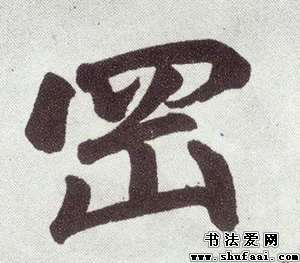 罡
书法爱网
www.shufaai.com